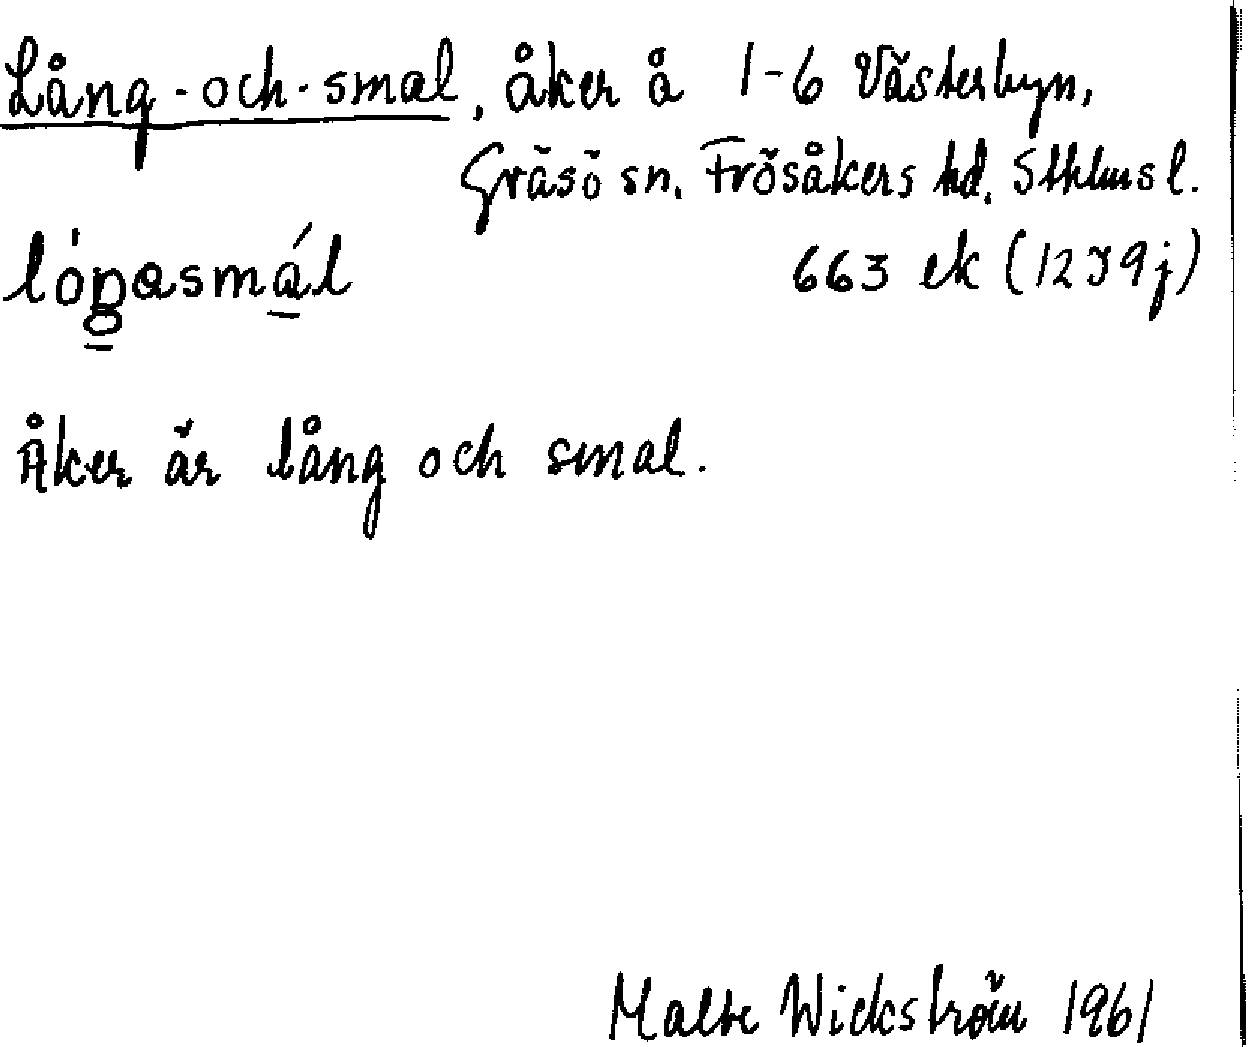 Lång-och-smal, åker å 1-6 Västerbyn,
Gräsö sn. Frösåkers hd. Sthlms l.
663 ek (12J9j)
Åker är lång och smal.
Malte Wickström 1961